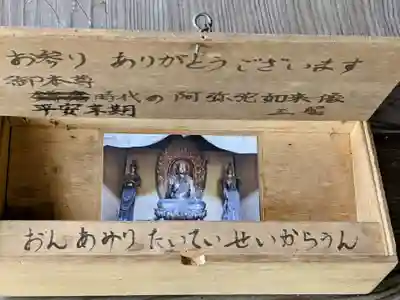 お参り ありがとうございます
御本尊
時代の阿弥陀如来像
平安末期
おんあみりたいていせいからうん